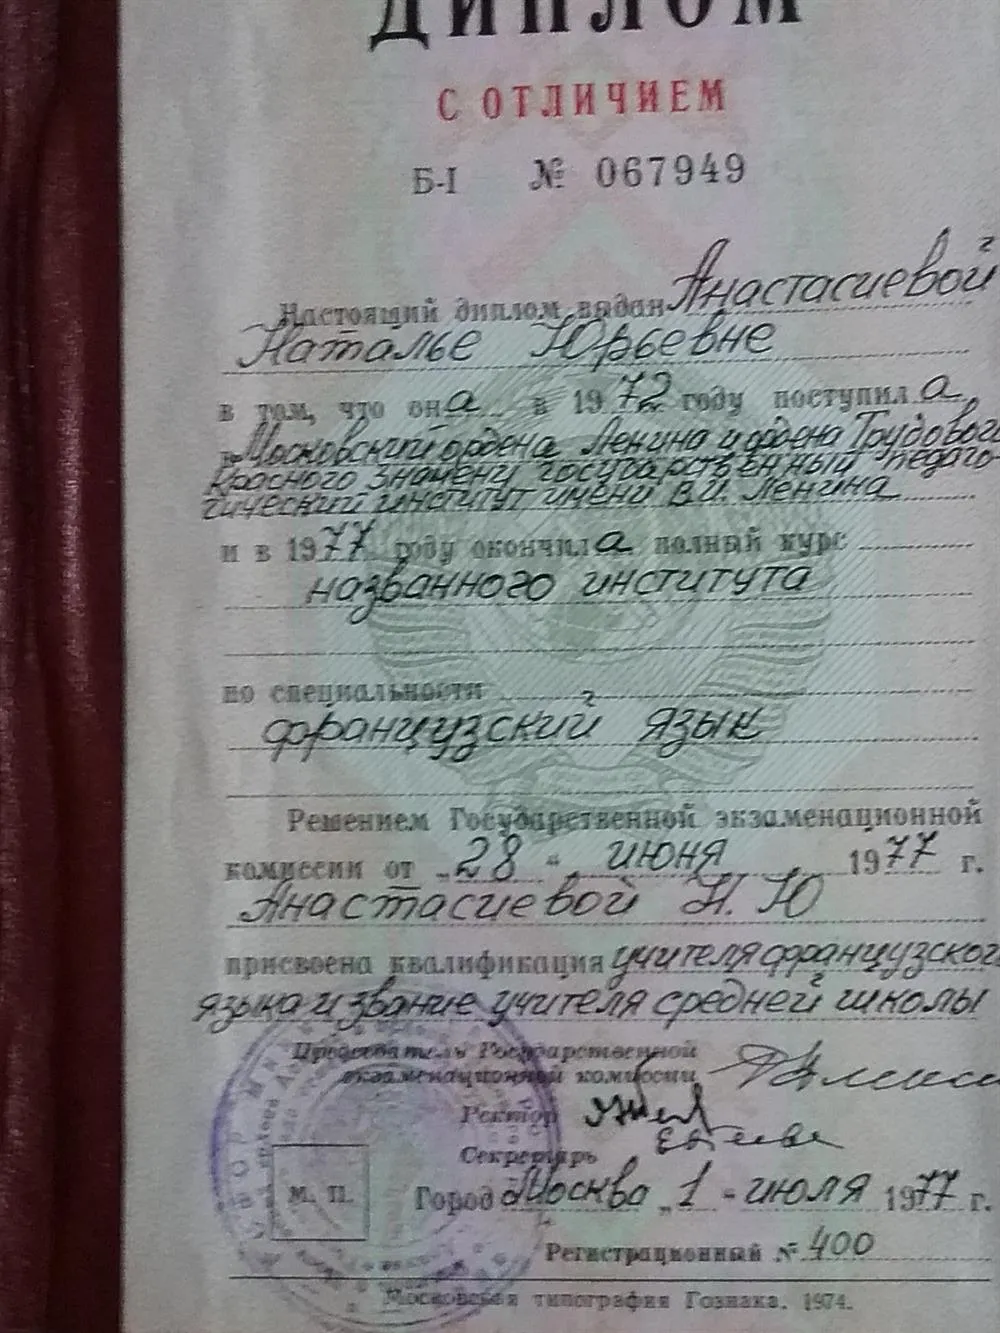 ДИПЛОМ
С ОТЛИЧИЕМ
Б-I № 067949
Настоящий диплом выдан Анастасиевой
Наталье Юрьевне
в том, что она в 1972 году поступила
в Московский ордена Ленина и ордена Трудового
Красного Знамени государственный педаго-
гический институт имени В.И. Ленина
и в 1977 году окончила полный курс
названного института
по специальности
французский язык
Решением Государственной экзаменационной
комиссии от „28“ июня 1977 г.
Анастасиевой Н. Ю
присвоена квалификация учителя французского
языка и звание учителя средней школы
Председатель Государственной
экзаменационной комиссии
Ректор
Секретарь
М. П.
Город Москва „1 - июля 1977 г.
Регистрационный № 400
Московская типография Гознака. 1974.